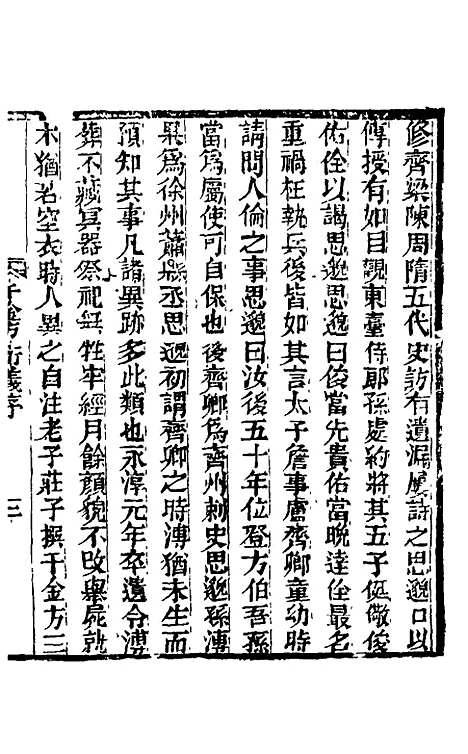 修齊梁陳周隋五代史訪有遺漏屢詩之思邈口以
傳授有如目觀東臺侍郎孫處約將其五子侹儆俊
佑佺以謁思邈思邈曰俊當先貴佑當晚達佺最名
重禍在執兵後皆如其言太子詹事盧齊卿童幼時
請問人倫之事思邈曰汝後五十年位登方伯吾孫
當爲屬使可自保也後齊卿爲齊州刺史思邈孫溥
果爲徐州蕭縣丞思邈初謂齊卿之時溥猶未生而
預知其事凡諸異跡多此類也永淳元年卒遺令薄
葬不藏冥器祭祀無牲牢經月餘顏貌不改舉屍就
木猶若空衣時人異之自注老子莊子撰千金方三
衍義序
三